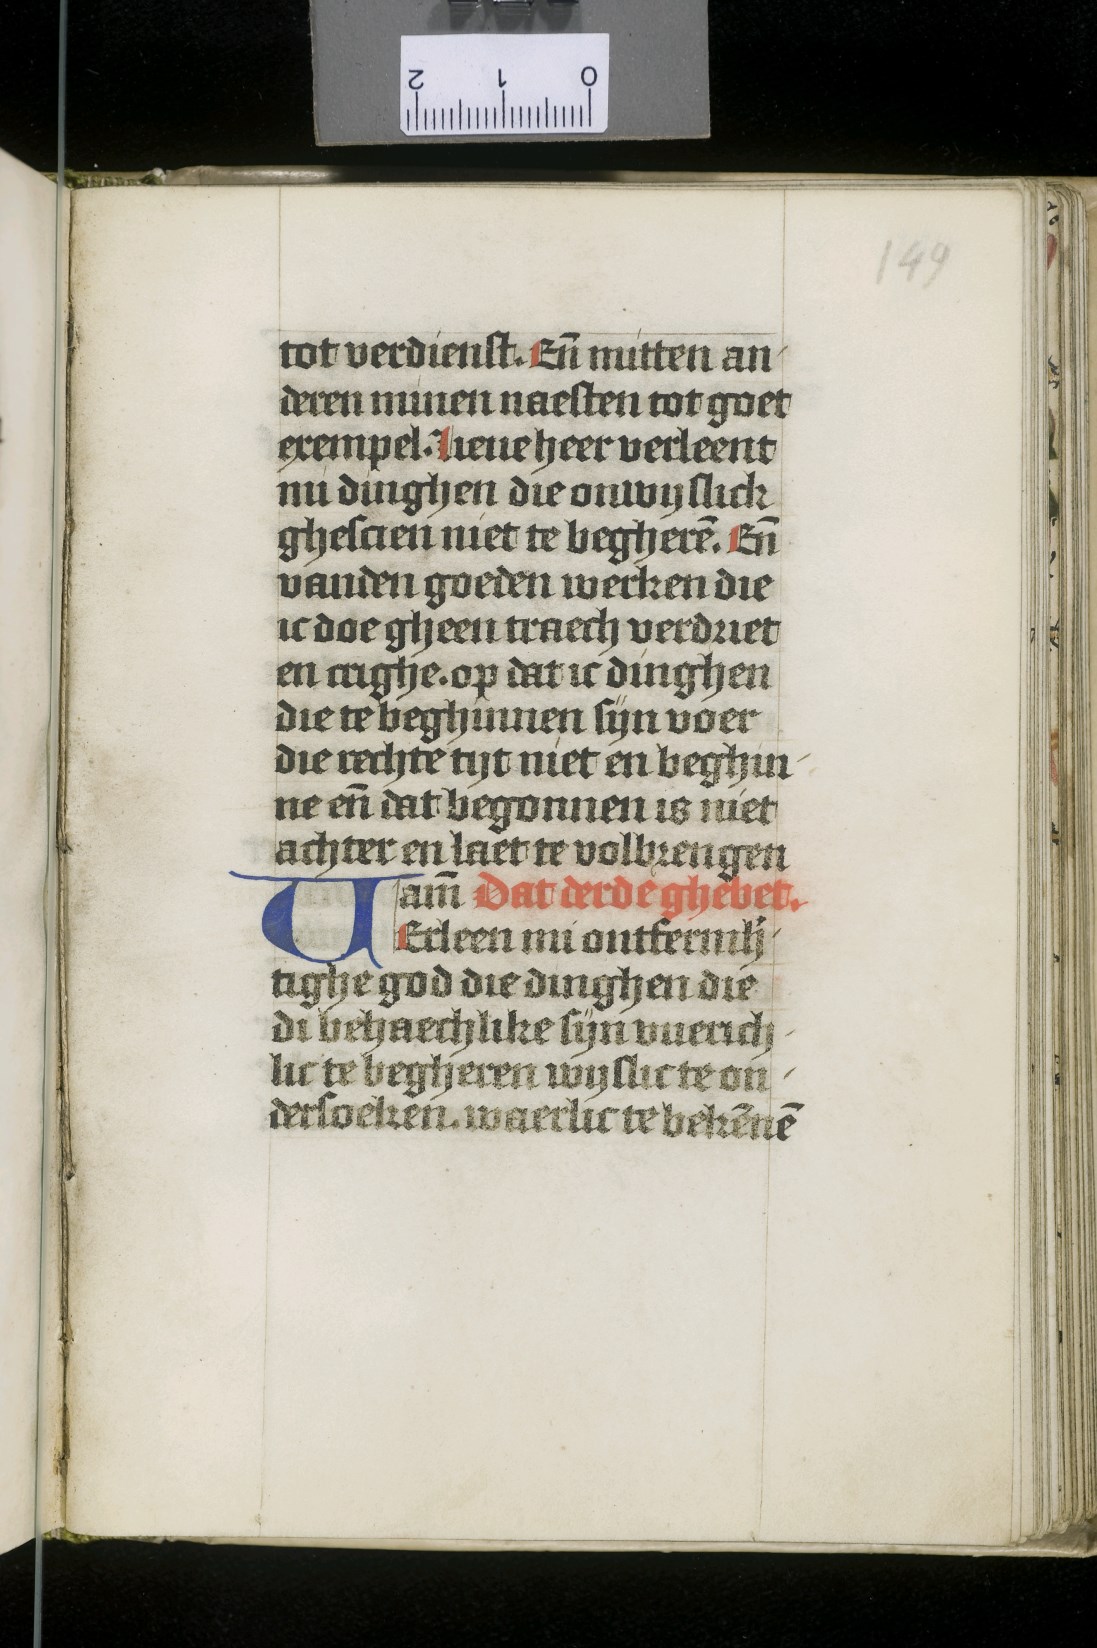 2 1 0
149
tot verdienst. En̄ mitten an
deren minen naesten tot goet
exempel. Lieue heer verleent
mi dinghen die onwijslick
ghescien niet te begherē. En̄
vanden goeden wercken die
ic doe gheen traech verdriet
en crighe. op dat ic dinghen
die te beghinnen sijn voer
die rechte tijt niet en beghin
ne en̄ dat begonnen is niet
achter en laet te volbrengen
am̄ Dat derde ghebet.
VErleen mi ontfermh
tighe god die dinghen die
di behaechlike sijn vuerich
lic te begheren wijslic te on
dersoeken. waerlic te bekēnē